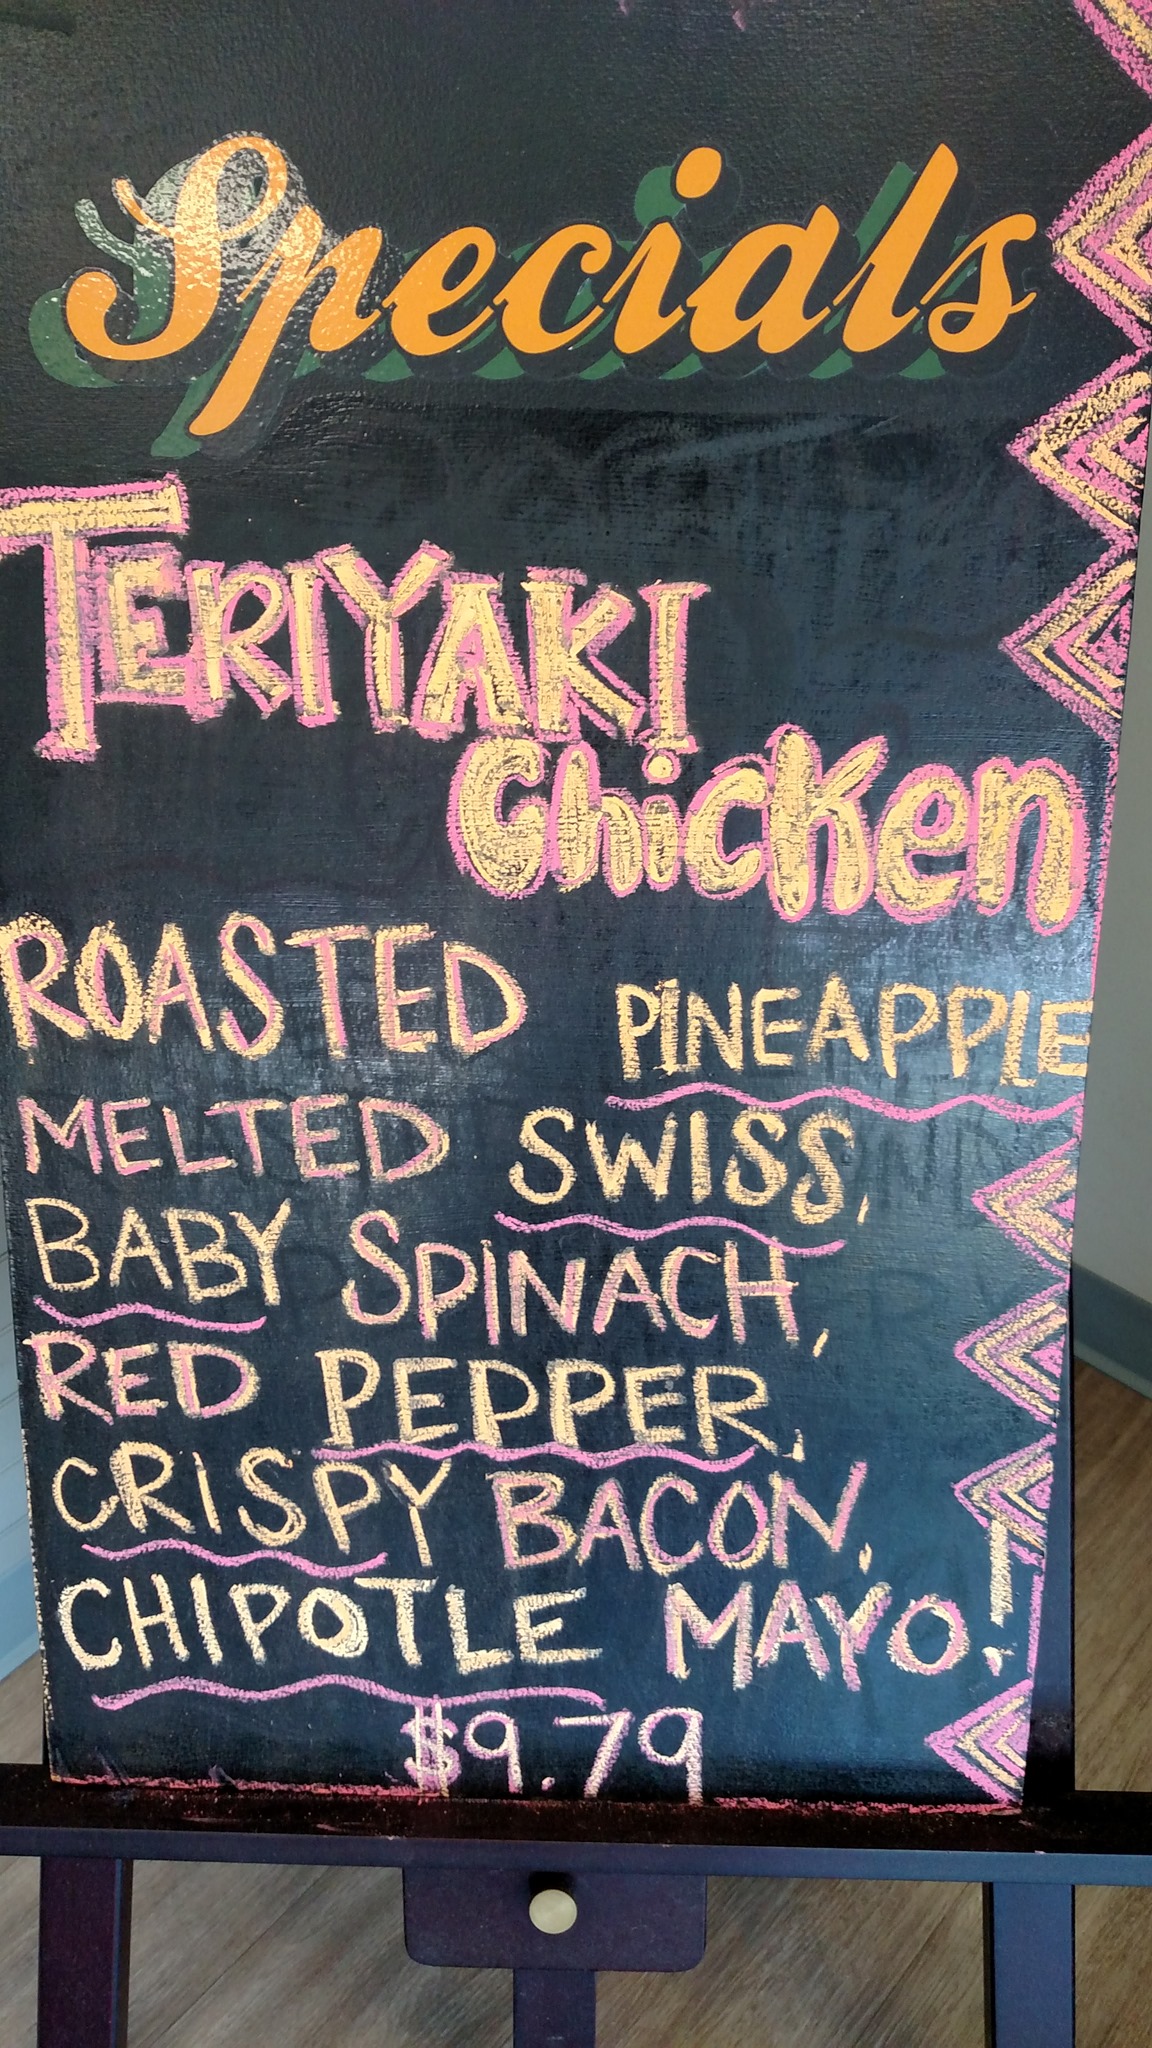 Specials
TERIYAKI
Chicken
ROASTED PINEAPPLE
MELTED SWISS,
BABY SPINACH,
RED PEPPER,
CRISPY BACON,
CHIPOTLE MAYO!
$9.79